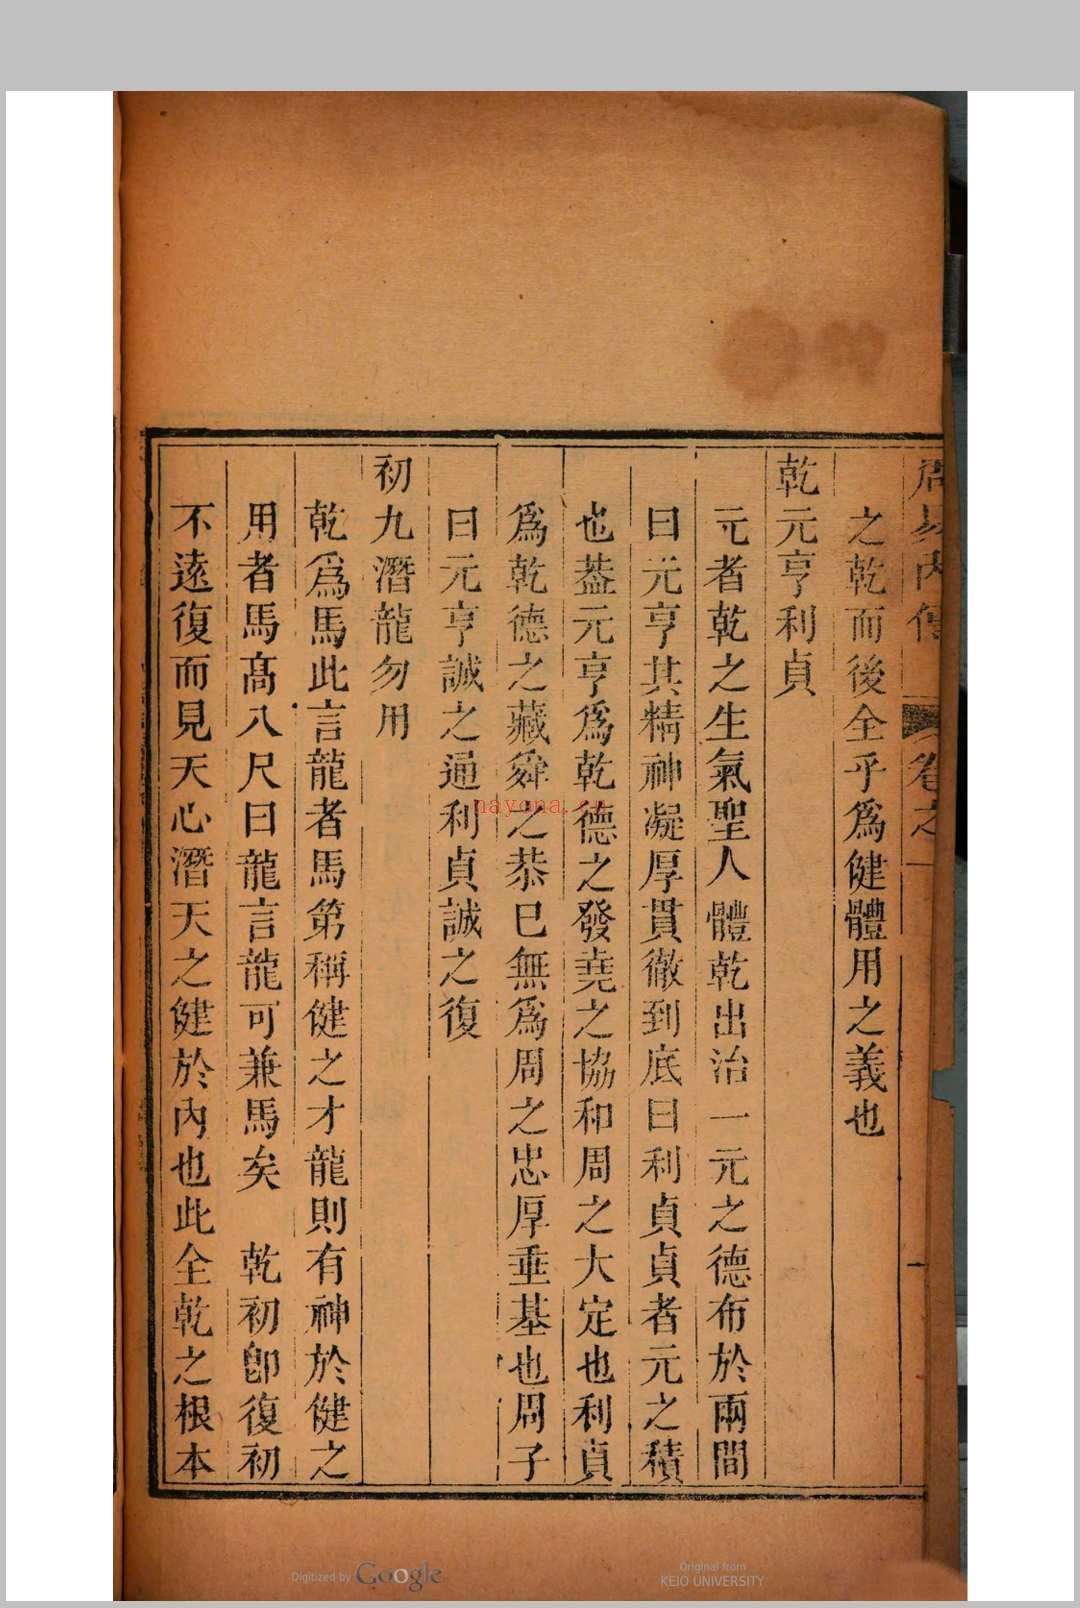 周易內傳 卷之一
之乾而後全乎爲健體用之義也
乾元亨利貞
元者乾之生氣聖人體乾出治一元之德布於兩間
曰元亨其精神凝厚貫徹到底曰利貞貞者元之積
也葢元亨爲乾德之發堯之協和周之大定也利貞
爲乾德之藏舜之恭已無爲周之忠厚垂基也周子
曰元亨誠之通利貞誠之復
初九潛龍勿用
乾爲馬此言龍者馬第稱健之才龍則有神於健之
用者馬髙八尺曰龍言龍可兼馬矣 乾初卽復初
不遠復而見天心潛天之健於內也此全乾之根本
nayona.cn
Digitized by Google
Original from
KEIO UNIVERSITY